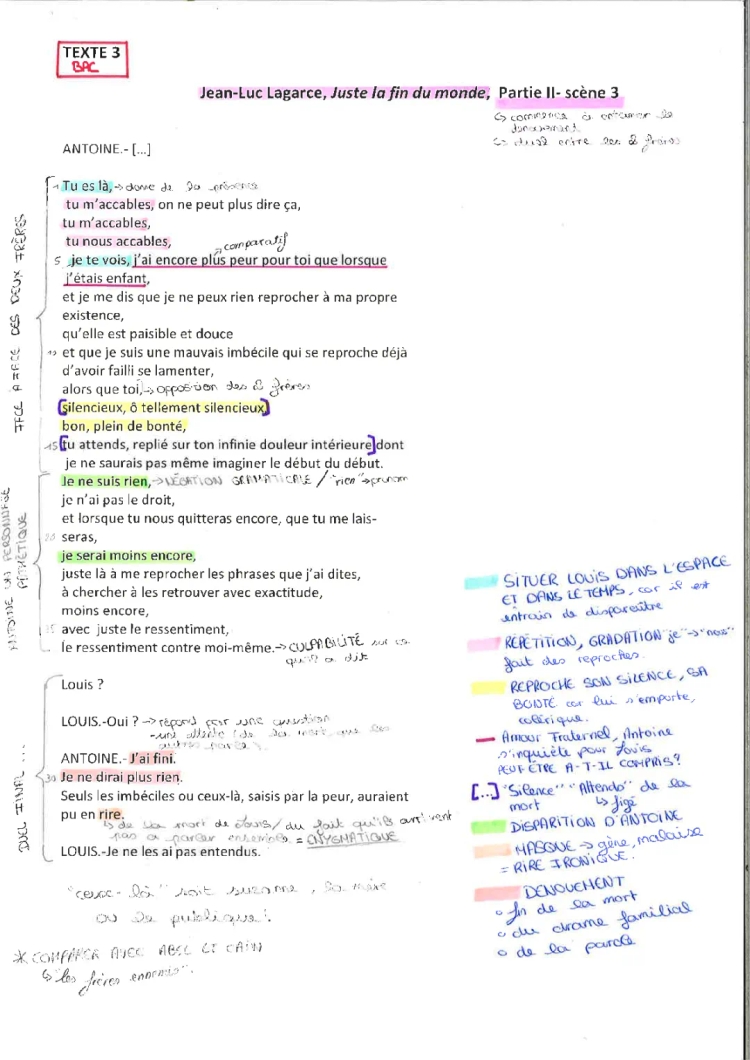 TEXTE 3
BAC
Jean-Luc Lagarce, Juste la fin du monde, Partie II- scène 3
↳ commence à entamer le
dénouement
↳ duel entre les 2 frères
ANTOINE.- [...]
FACE A FACE DES DEUX FRÈRES
1 Tu es là, → donne de la présence
tu m'accables, on ne peut plus dire ça,
tu m'accables,
tu nous accables,
comparatif
5 je te vois, j'ai encore plus peur pour toi que lorsque
j'étais enfant,
et je me dis que je ne peux rien reprocher à ma propre
existence,
qu'elle est paisible et douce
10 et que je suis une mauvais imbécile qui se reproche déjà
d'avoir failli se lamenter,
alors que toi, → opposition des 2 frères
[silencieux, ô tellement silencieux]
bon, plein de bonté,
15 [tu attends, replié sur ton infinie douleur intérieure] dont
je ne saurais pas même imaginer le début du début.
ANTOINE UN PERSONNAGE
PATHÉTIQUE
Je ne suis rien, → NÉGATION GRAMMATICALE / "rien" → pronom
je n'ai pas le droit,
et lorsque tu nous quitteras encore, que tu me lais-
20 seras,
je serai moins encore,
juste là à me reprocher les phrases que j'ai dites,
à chercher à les retrouver avec exactitude,
moins encore,
25 avec juste le ressentiment,
le ressentiment contre moi-même. → CULPABILITÉ sur ce
qu'il a dit
DUEL FINAL ...
Louis ?
LOUIS.-Oui ? → répond par une question
- une attente (de la mort, que les
autres parle).
ANTOINE.- J'ai fini.
30 Je ne dirai plus rien.
Seuls les imbéciles ou ceux-là, saisis par la peur, auraient
pu en rire.
↳ de la mort de Louis / du fait qu'ils arrivent
pas à parler ensembles = ENYGMATIQUE
LOUIS.-Je ne les ai pas entendus.
"ceux-là" soit suzanne, la mère
ou le publique !
* COMPARER AVEC ABEL ET CAIN
↳ "les frères ennemis".
SITUER LOUIS DANS L'ESPACE
ET DANS LE TEMPS, car il est
entrain de disparaître
RÉPÉTITION, GRADATION "je" → "nous"
fait des reproches.
REPROCHE SON SILENCE, SA
BONTÉ car lui s'emporte,
colérique.
Amour Fraternel, Antoine
s'inquiète pour Louis
PEUT ÊTRE A-T-IL COMPRIS ?
[...] "Silence" "Attendo" de la
mort ↳ figé
DISPARITION D'ANTOINE
MASQUE → gêne, malaise
= RIRE IRONIQUE.
DENOUEMENT
o fin de la mort
o du drame familial
o de la parole